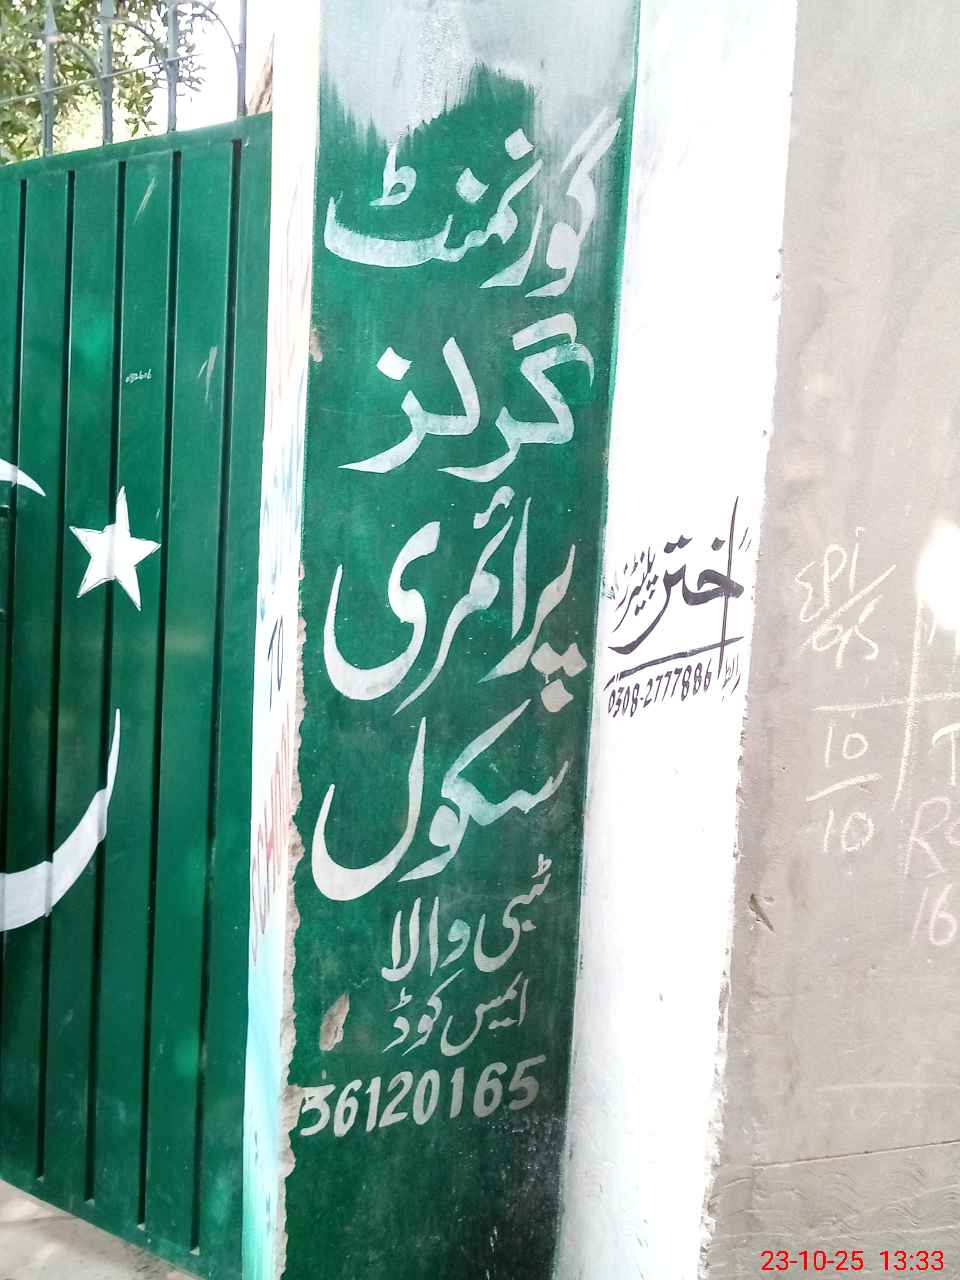 گورنمنٹ
گرلز
پرائمری
سکول
ٹبی والا
ایمس کوڈ
36120165
اختر پینٹرز
0308-2777886
EPI
10
10
16
23-10-25 13:33